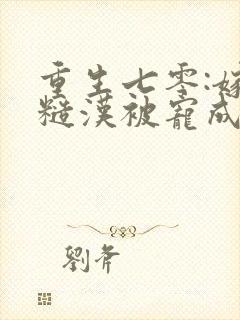 重生七零:嫁
糙漢被寵成
劉斧